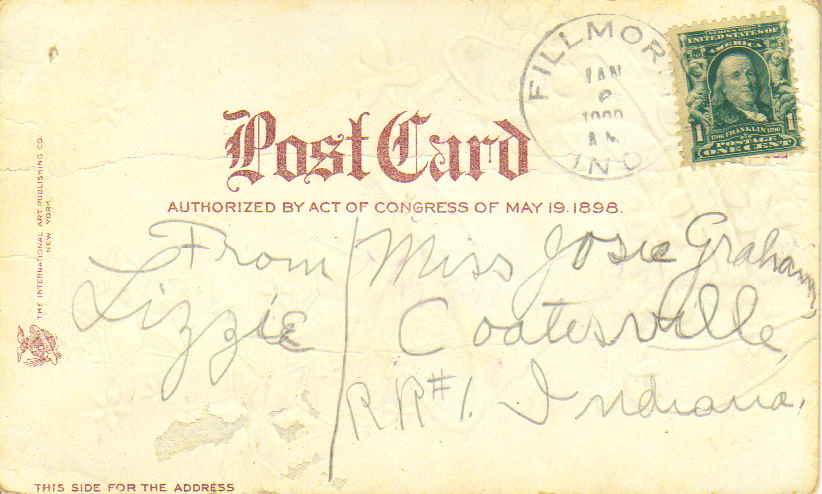 FILLMOR
JAN
IND
UNITED STATES OF
AMERICA
1 FRANKLIN 1
POSTAGE
ONE CENT
Post Card
AUTHORIZED BY ACT OF CONGRESS OF MAY 19. 1898.
THE INTERNATIONAL ART PUBLISHING CO.
NEW YORK.
From
Lizzie
Miss Josie Graham,
Coatesville,
RR#1. Indiana,
THIS SIDE FOR THE ADDRESS